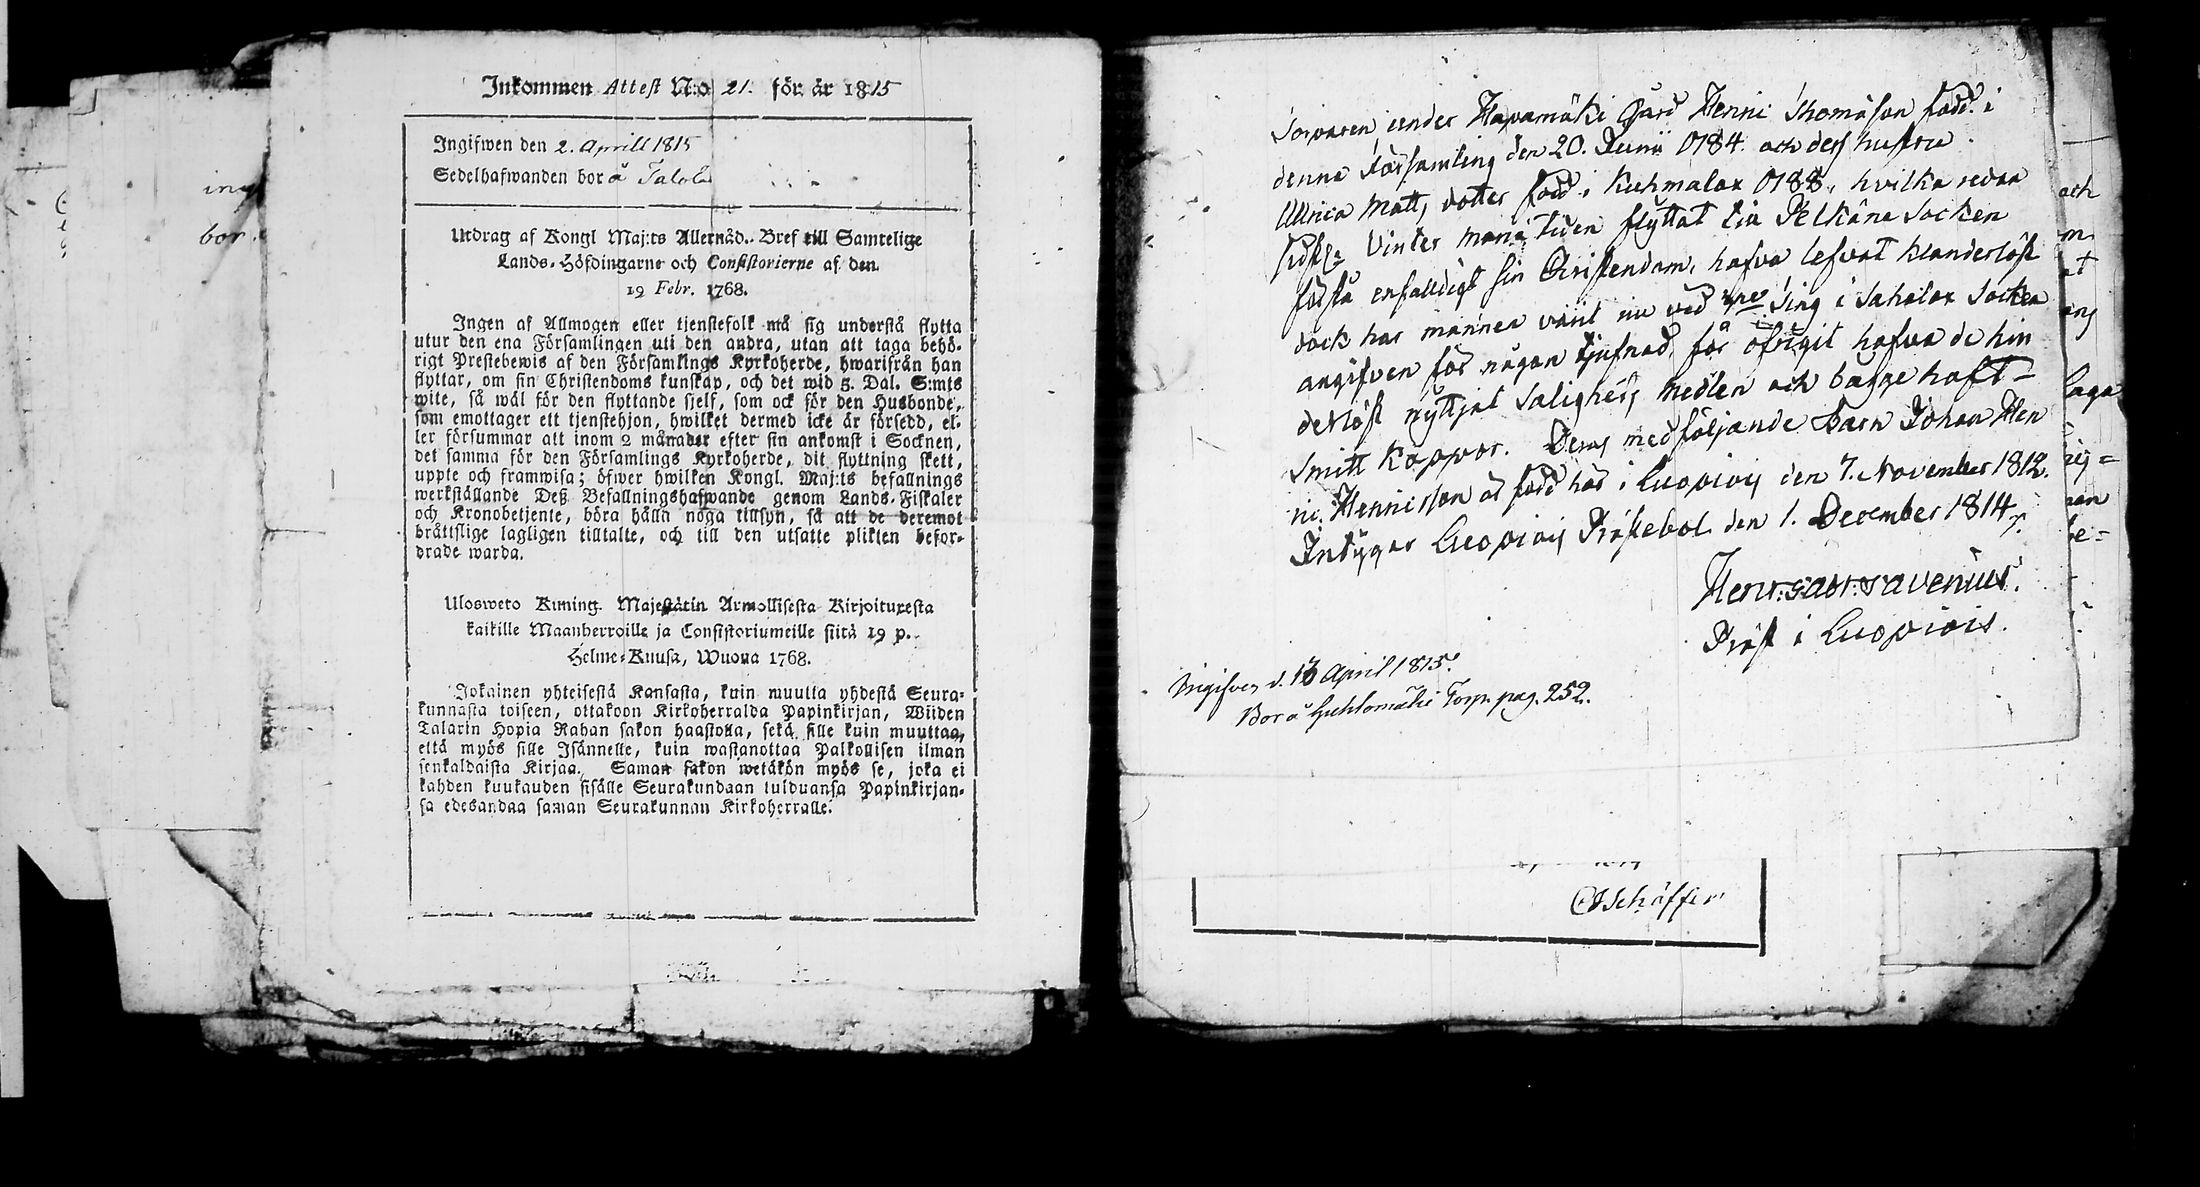 Inkommen Attest N:o 21. för år 1815
Ingifwen den 2. Aprill 1815
Sedelhafwanden bor å Talola
Utdrag af Kongl Maj:ts Allernåd. Bref till Samtelige
Lands-Höfdingarne och Consistorierne af den
19 Febr. 1768.
Ingen af Allmogen eller tjenstefolk må sig understå flytta
utur den ena Församlingen uti den andra, utan att taga behö-
rigt Prestebewis af den Församlings Kyrkoherde, hwarifrån han
flyttar, om sin Christendoms kunskap, och det wid 5. Dal. S:mts
wite, så wäl för den flyttande sjelf, som ock för den Husbonde,
som emottager ett tjenstehjon, hwilket dermed icke är försedd, el-
ler försummar att inom 2 månader efter sin ankomst i Socknen,
det samma för den Församlings Kyrkoherde, dit flyttning skett,
uppte och framwisa; öfwer hwilken Kongl. Maj:ts befallnings
werkställande Deß Befallningshafwande genom Lands-Fiskaler
och Kronobetjente, böra hålla noga tillsyn, så att de deremot
bråttslige lagligen tilltalte, och till den utsatte plikten befor-
drade warda.
Ulosweto Kuning. Majestätin Armollisesta Kirjoituxesta
kaikille Maanherroille ja Consistoriumeille siitä 19 p.
Helme-Kuusa, Wuona 1768.
Jokainen yhteisestä Kansasta, kuin muutta yhdestä Seura-
kunnasta toiseen, ottakoon Kirkoherralda Papinkirjan, Wiiden
Talarin Hopia Rahan sakon haastolla, sekä sille kuin muuttaa,
että myös sille Isännelle, kuin wastanottaa Palkollisen ilman
senkaldaista Kirjaa. Saman sakon wetäkön myös se, joka ei
kahden kuukauden sisälle Seurakundaan tulduansa Papinkirjan-
sa edesandaa saman Seurakunnan Kirkoherralle.
Torparen under Hapamäki Gård Henric Thomasson född i
denna Församling den 20. Junii 1784. och dess hustru
Ullrica Matts dotter född i Kuhmalax 1788, hvilka redan
sidstl: Vinter månads tiden flyttat til Pelkäne Socken
förstå enfalldigt sin Christendom, hafva lefvat klanderlöst
dock har mannen varit nu ved Ting i Sahalax Socken
angifven för någon tjufnad, för öfrigit hafva de hin
derlöst nyttjat Salighets medlen och bägge haft
Smitt Koppor. Deras medföljande Barn Johan Hen
ric Henricsson är född här i Luopiois den 7. November 1812.
Intygar Luopiois Prästebol den 1. December 1814.
Henr: Gabr: Favenius.
Präst i Luopiois.
Ingifven d. 13 April 1815.
Bor å Huhtamäki Torp. pag. 252.
CJSchäffer
ing
bor
och
m
at
ens
Laga
rig=
nan
be=